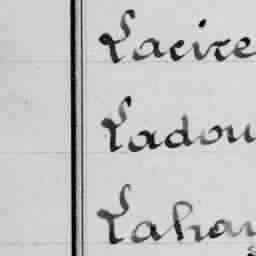 Lacire
Ladou
Lahar